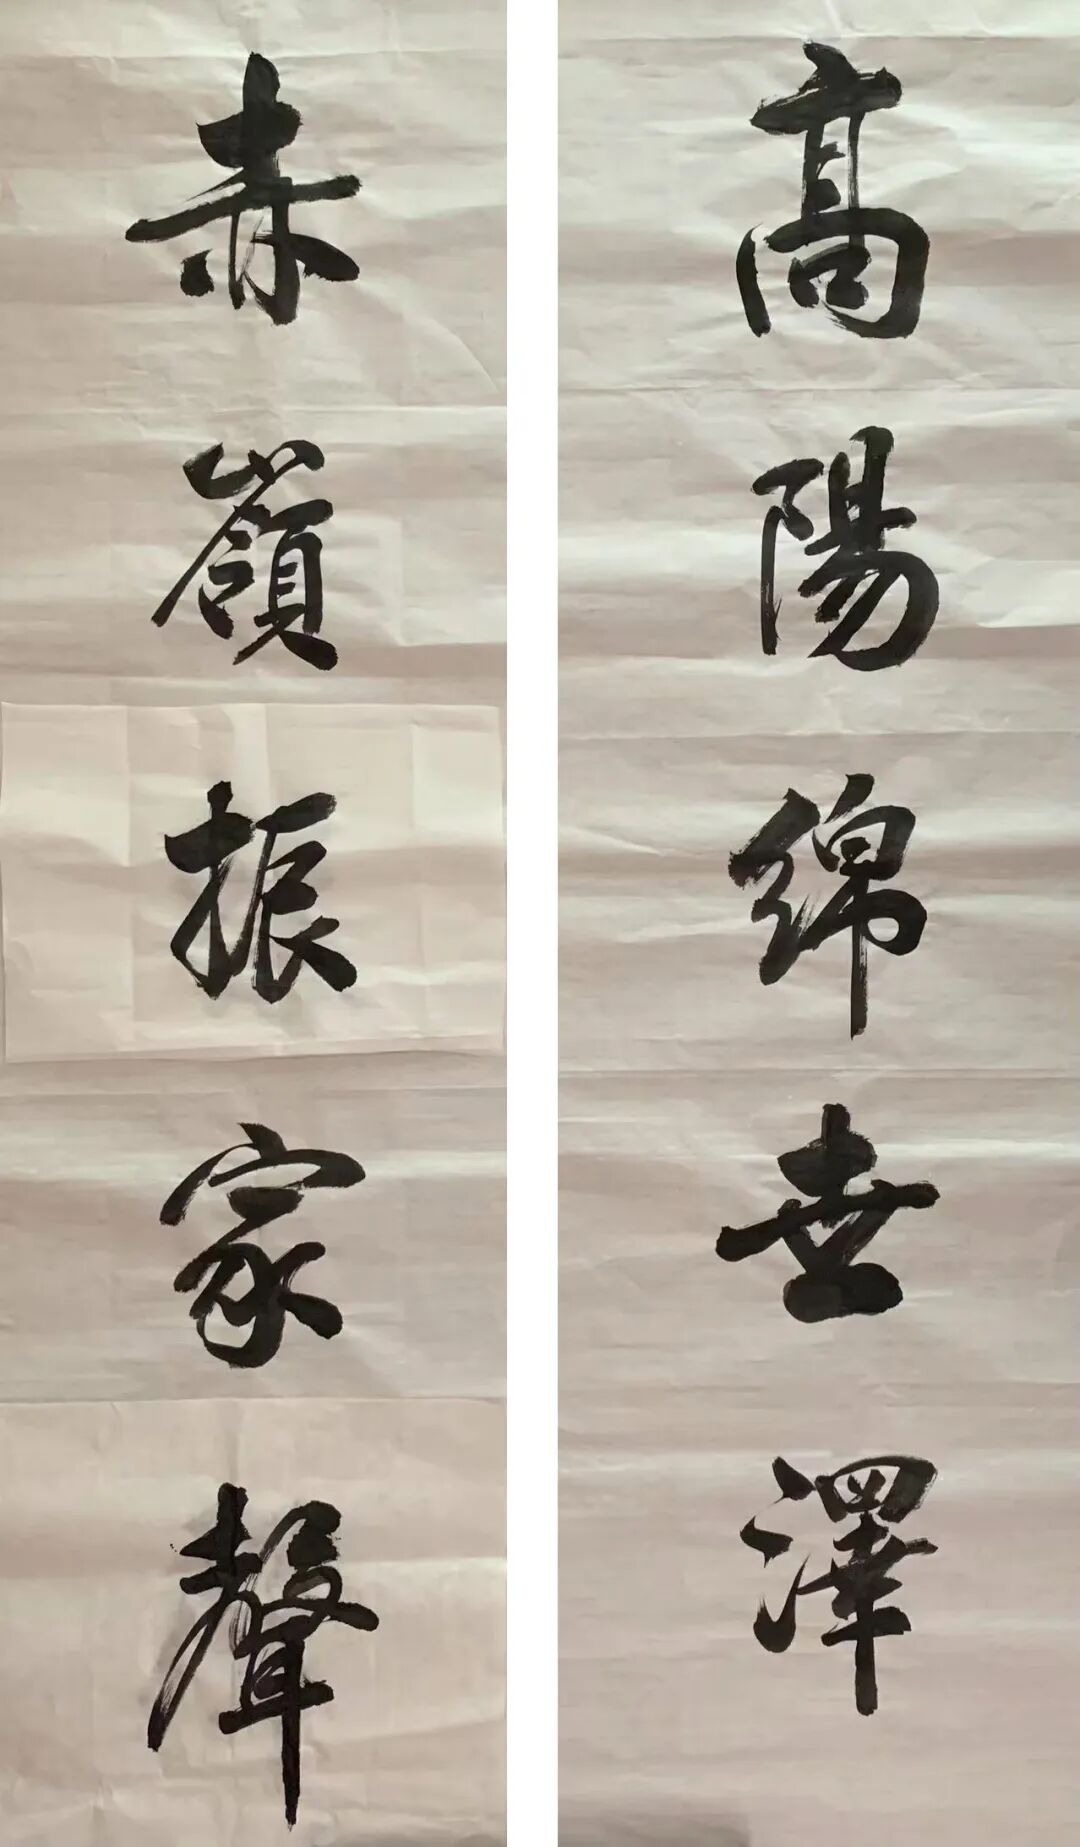 高陽綿世澤
赤嶺振家聲